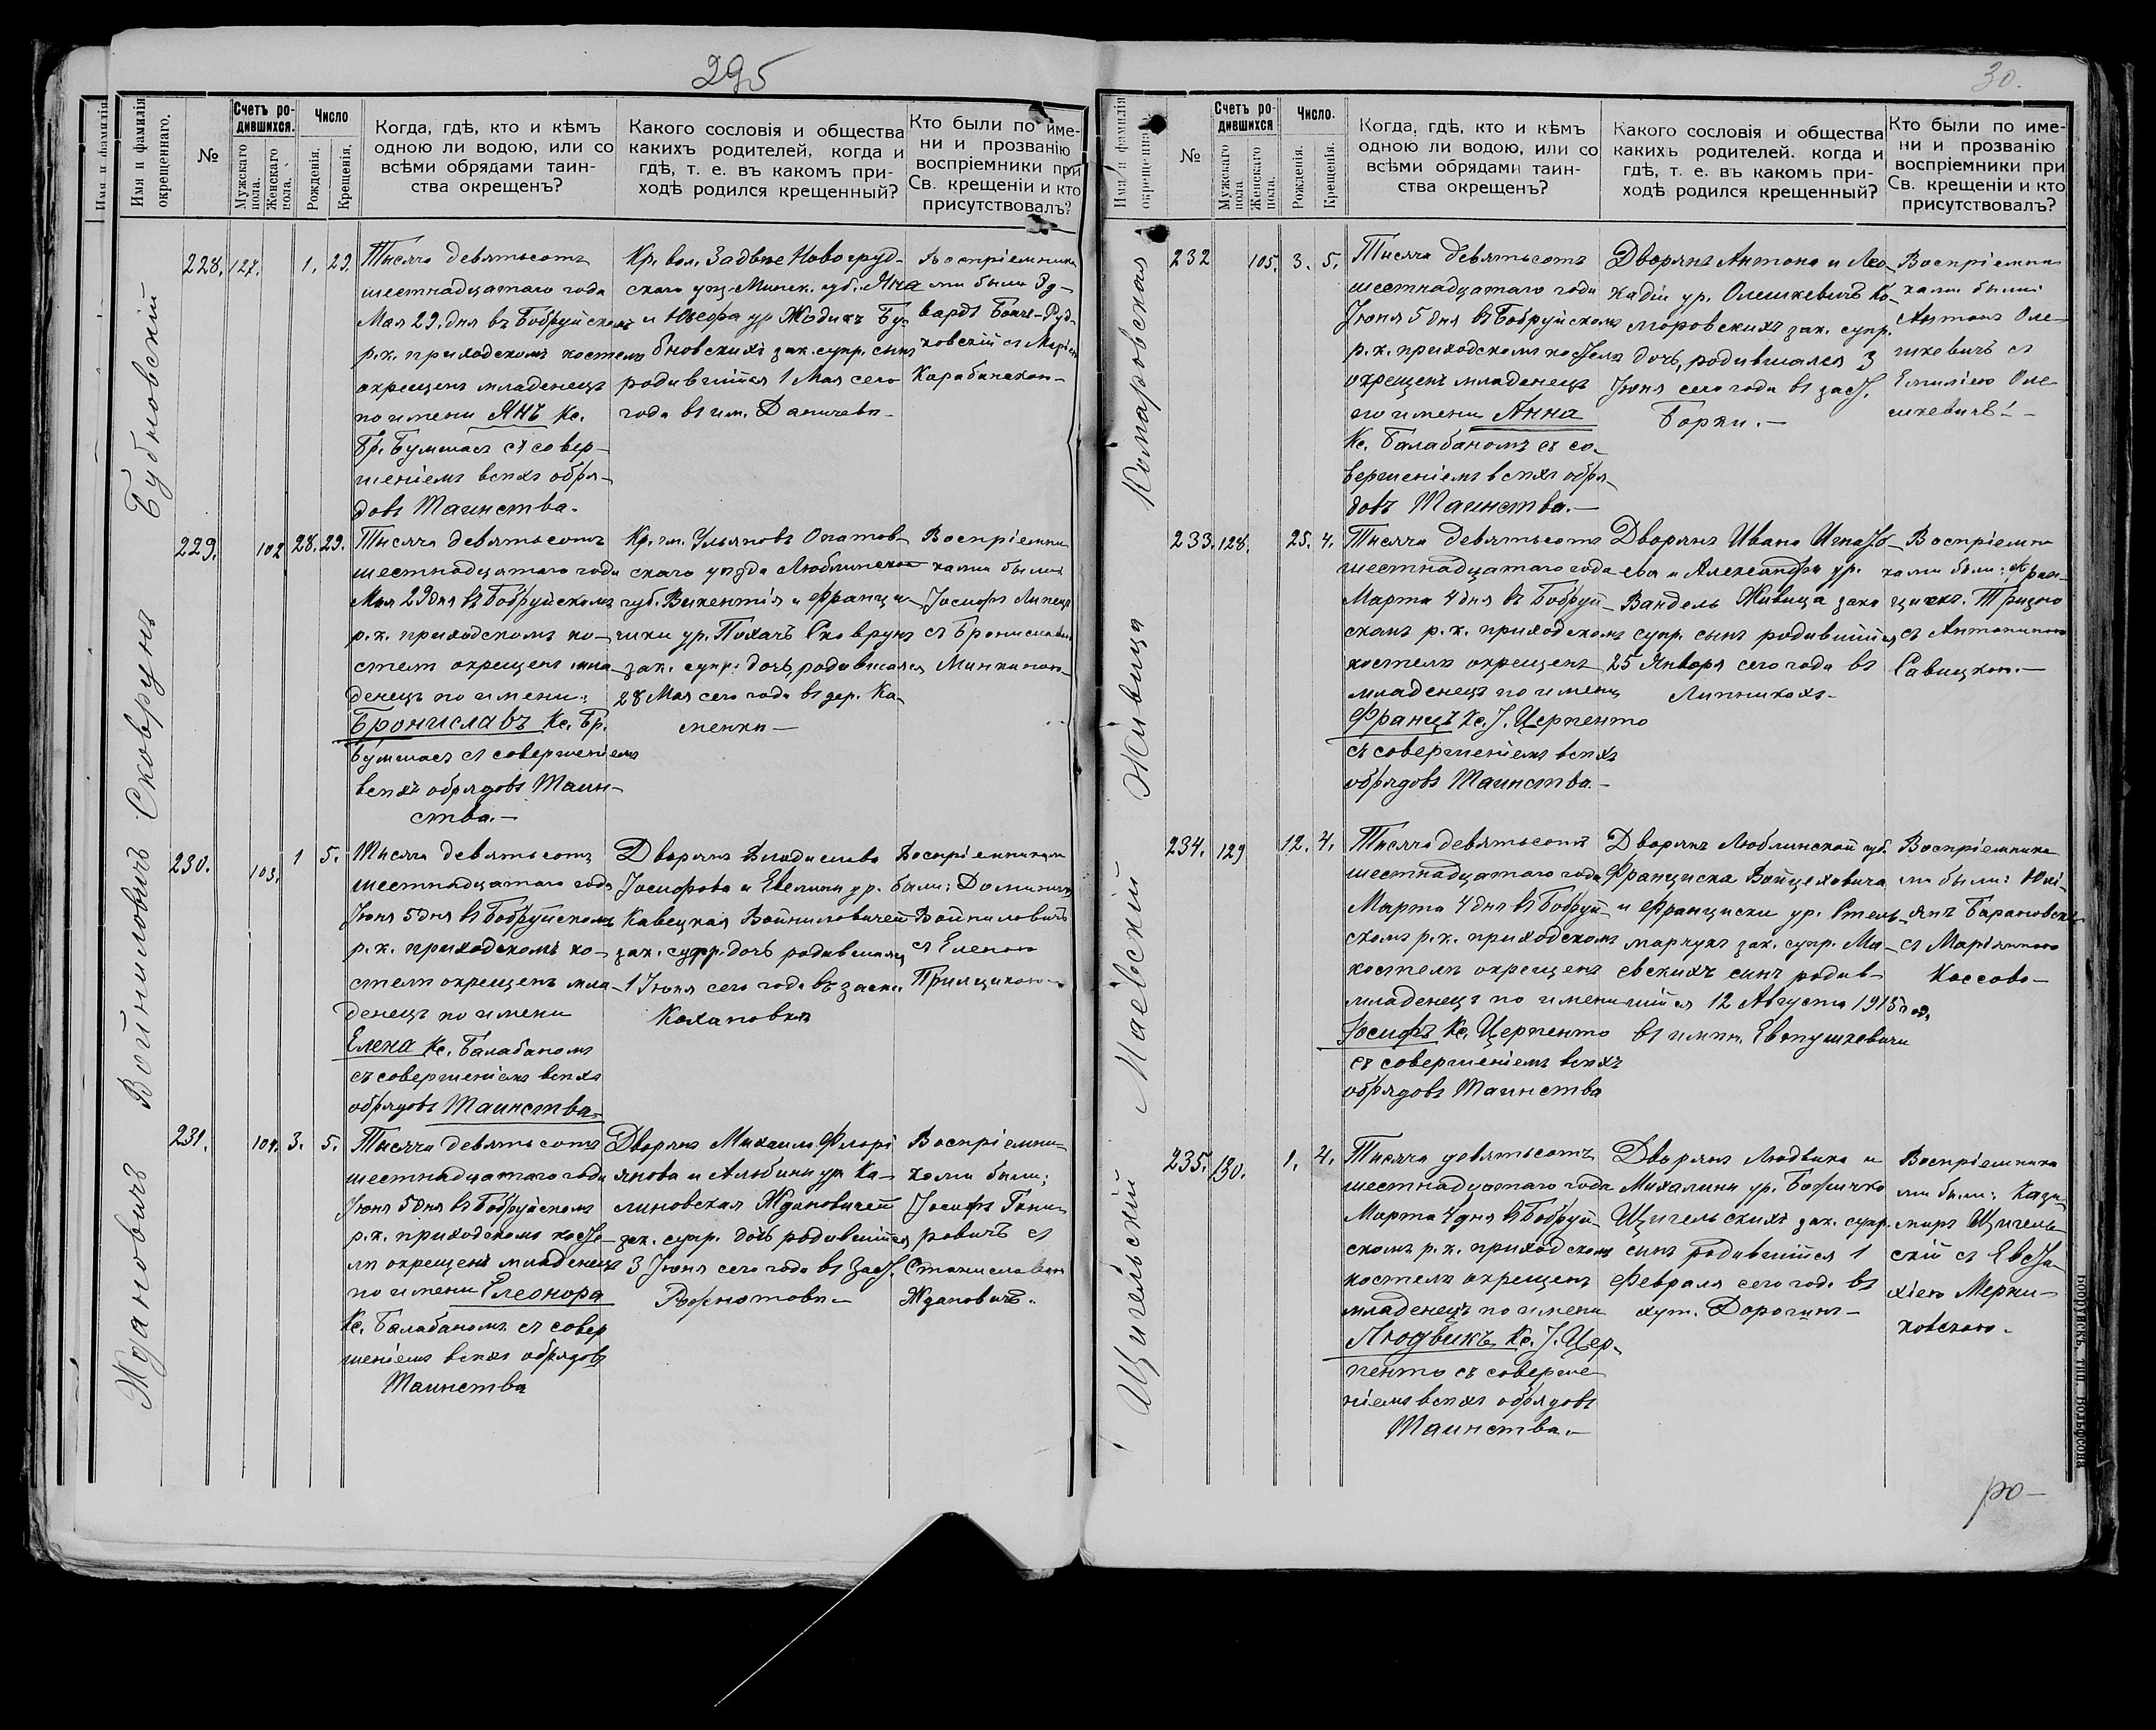 295
Имя и фамилія
Имя и фамилія окрещеннаго.
№
Счетъ ро-
дившихся.
Мужскаго пола.
Женскаго пола.
Число
Рожденія.
Крещенія.
Когда, гдѣ, кто и кѣмъ
одною ли водою, или со
всѣми обрядами таин-
ства окрещенъ?
Какого сословія и общества
какихъ родителей, когда и
гдѣ, т. е. въ какомъ при-
ходѣ родился крещенный?
Кто были по име-
ни и прозванію
воспріемники при
Св. крещеніи и кто
присутствовалъ?
Бубновскій
228. 127. 1. 29.
Тысяча девятьсотъ
шестнадцатаго года
Мая 29. дня въ Бобруйскомъ
р.к. приходскомъ костелѣ
окрещенъ младенецъ
по имени ЯНЪ Кс.
Бр. Бумшасъ съ совер-
шеніемъ всѣхъ обря-
довъ Таинства.
Кр. вол. Задвѣе Новогруд-
скаго уѣз. Минск. губ. Яна
и Юзефа ур Жодикъ Бу-
бновскихъ зак. супр. сынъ
родившійся 1 Мая сего
года въ им. Даничевѣ
Воспріемника
ми были Эд-
вардъ Бонч-Руд-
ковскій съ Маріею
Карабанскою
Сковрунъ
229. 102 28. 29.
Тысяча девятьсотъ
шестнадцатаго года
Мая 29 дня въ Бобруйскомъ
р.к. приходскомъ ко-
стелѣ окрещенъ мла-
денецъ по имени:
Брониславъ Кс. Бр.
Бумшасъ съ совершеніемъ
всѣхъ обрядовъ Таин-
ства.
Кр. гм. Ульяновъ Опатов-
скаго уѣзда Люблинской
губ. Викентія и Францы-
шки ур. Похачъ Сковрунъ
зак. супр. дочь, родившаяся
28 Мая сего года въ дер. Ка-
менки
Воспріемни
ками были
Іосифъ Липецъ
съ Брониславою
Минкиною
Войниловичъ
230. 103. 1 5.
Тысяча девятьсотъ
шестнадцатаго года
Іюня 5 дня въ Бобруйскомъ
р.к. приходскомъ ко-
стелѣ окрещенъ мла-
денецъ по имени
Елена Кс. Балабаномъ
съ совершеніемъ всѣхъ
обрядовъ Таинства.
Дворянъ Владислава
Іосифова и Евелины ур.
Кавецкая Войниловичей
зак. супр. дочь родившаяся
1 Іюня сего года въ засн.
Кохановкѣ
Воспріемниками
были: Доминикъ
Войниловичъ
съ Еленою
Прилщикою
Ждановичъ
231. 104. 3. 5.
Тысяча девятьсотъ
шестнадцатаго года
Іюня 5 дня въ Бобруйскомъ
р.к. приходскомъ косте-
лѣ окрещенъ младенецъ
по имени Елеонора
Кс. Балабаномъ съ совер
шеніемъ всѣхъ обрядовъ
Таинства
Дворянъ Михаила Флорі
янова и Альбины ур Ка-
линовская Ждановичей
зак. супр. дочь родившійся
3 Іюня сего года въ заст.
Воспріемни-
ками были;
Іосифъ Гани-
ровичъ съ
Станиславою
Ждановичъ.
30.
Имя и фамилія окрещеннаго
№
Счетъ ро-
дившихся
Мужскаго пола
Женскаго пола.
Число.
Рожденія.
Крещенія.
Когда, гдѣ, кто и кѣмъ
одною ли водою, или со
всѣми обрядами таин-
ства окрещенъ?
Какого сословія и общества
какихъ родителей. когда и
гдѣ, т. е. въ какомъ при-
ходѣ родился крещенный?
Кто были по име-
ни и прозванію
воспріемники при
Св. крещеніи и кто
присутствовалъ?
Комаровская
232 105. 3. 5.
Тысяча девятьсотъ
шестнадцатаго года
Іюня 5 дня въ Бобруйскомъ
р.к. приходскомъ костелѣ
окрещенъ младенецъ
по имени Анна
Кс. Балабаномъ съ со-
вершеніемъ всѣхъ обря-
довъ Таинства.
Дворянъ Антона и Лео-
кадіи ур. Олешкевичъ Ко-
моровскихъ зак. супр.
дочь, родившаяся 3
Іюня сего года въ заст.
Борки.
Воспріемни
ками были:
Антонъ Оле-
шкевичъ съ
Емиліею Оле-
шкевичъ
Живица
233. 128. 25. 4.
Тысяча девятьсотъ
шестнадцатаго года
Марта 4 дня въ Бобруй-
скомъ р.к. приходскомъ
костелѣ окрещенъ
младенецъ по имени
Францъ Кс. І. Церпенто
съ совершеніемъ всѣхъ
обрядовъ Таинства.
Дворянъ Ивана Игнатъ-
ева и Александры ур.
Вандель Живица зако
супр. сынъ родившійся
25 Января сего года въ
Липникахъ
Воспріемни
ками были: Фран-
цискъ Тризно
съ Антониною
Савицкою.
Маевскій
234. 129 12. 4.
Тысяча девятьсотъ
шестнадцатаго года
Марта 4 дня въ Бобруй-
скомъ р.к. приходскомъ
костелѣ окрещенъ
младенецъ по имени
Іосифъ Кс. Церпенто
съ совершеніемъ всѣхъ
обрядовъ Таинства
Дворянъ Люблинской губ.
Франциска Войцеховича
и Францишки ур. Стель-
марчукъ зак. супр. Ма-
евскихъ сынъ родив-
шійся 12 Августа 1915 год.
въ имѣн. Евтушкевичи
Воспріемника
ми были: Юлі-
янъ Барановскій
съ Маріянною
Коссово
Щигельскій
235. 130. 1. 4.
Тысяча девятьсотъ
шестнадцатаго года
Марта 4 дня въ Бобруй-
скомъ р.к. приходскомъ
костелѣ окрещенъ
младенецъ по имени
Людвикъ Кс. І. Цер-
пенто съ соверше
ніемъ всѣхъ обрядовъ
Таинства.
Дворянъ Людвика и
Михалины ур. Божичко
Щигельскихъ зак. супр.
сынъ родившійся 1
Февраля сего года въ
хут. Дорогинъ
Воспріемника
ми были: Кази-
миръ Щигель-
скій съ Евста-
хіею Мерки-
ховскою.
Бобруйскъ, тип. Вольфсона
ро-